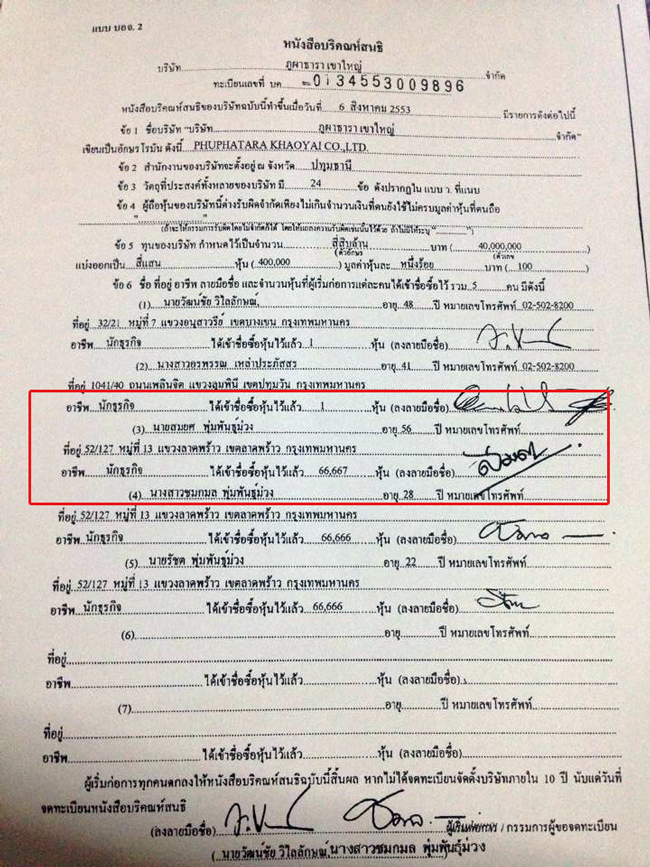 แบบ บอจ. 2
หนังสือบริคณห์สนธิ
บริษัท ภูผาธารา เขาใหญ่ จำกัด
ทะเบียนเลขที่ บค 0134553009896
หนังสือบริคณห์สนธิของบริษัทฉบับนี้ทำขึ้นเมื่อวันที่ 6 สิงหาคม 2553 มีรายการดังต่อไปนี้
ข้อ 1 ชื่อบริษัท "บริษัท ภูผาธารา เขาใหญ่ จำกัด"
เขียนเป็นอักษรโรมัน ดังนี้ PHUPHATARA KHAOYAI CO.,LTD.
ข้อ 2 สำนักงานของบริษัทจะตั้งอยู่ ณ จังหวัด ปทุมธานี
ข้อ 3 วัตถุที่ประสงค์ทั้งหลายของบริษัท มี 24 ข้อ ดังปรากฏใน แบบ ว. ที่แนบ
ข้อ 4 ผู้ถือหุ้นของบริษัทนี้ต่างรับผิดจำกัดเพียงไม่เกินจำนวนเงินที่ตนยังใช้ไม่ครบมูลค่าหุ้นที่ตนถือ
(ถ้าจะให้กรรมการรับผิดโดยไม่จำกัดก็ได้ โดยให้แถลงความรับผิดเช่นนั้นไว้ด้วย ถ้าไม่มีให้ระบุ "-")
ข้อ 5 ทุนของบริษัท กำหนดไว้เป็นจำนวน สี่สิบล้าน บาท ( 40,000,000 )
(ตัวอักษร) (ตัวเลข)
แบ่งออกเป็น สี่แสน หุ้น ( 400,000 ) มูลค่าหุ้นละ หนึ่งร้อย บาท ( 100 )
ข้อ 6 ชื่อ ที่อยู่ อาชีพ ลายมือชื่อ และจำนวนหุ้นที่ผู้เริ่มก่อการแต่ละคนได้เข้าชื่อซื้อไว้ รวม 5 คน มีดังนี้
(1) นายวัฒน์ชัย วิไลลักษณ์ อายุ 48 ปี หมายเลขโทรศัพท์ 02-502-8200
ที่อยู่ 32/21 หมู่ที่ 7 แขวงอนุสาวรีย์ เขตบางเขน กรุงเทพมหานคร
อาชีพ นักธุรกิจ ได้เข้าชื่อซื้อหุ้นไว้แล้ว 1 หุ้น (ลงลายมือชื่อ)
(2) นางสาวอรพรรณ เหล่าประภัสสร อายุ 41 ปี หมายเลขโทรศัพท์ 02-502-8200
ที่อยู่ 1041/40 ถนนเพลินจิต แขวงลุมพินี เขตปทุมวัน กรุงเทพมหานคร
อาชีพ นักธุรกิจ ได้เข้าชื่อซื้อหุ้นไว้แล้ว 1 หุ้น (ลงลายมือชื่อ)
(3) นายสมยศ พุ่มพันธุ์ม่วง อายุ 56 ปี หมายเลขโทรศัพท์
ที่อยู่ 52/127 หมู่ที่ 13 แขวงลาดพร้าว เขตลาดพร้าว กรุงเทพมหานคร
อาชีพ นักธุรกิจ ได้เข้าชื่อซื้อหุ้นไว้แล้ว 66,667 หุ้น (ลงลายมือชื่อ)
(4) นางสาวชมกมล พุ่มพันธุ์ม่วง อายุ 28 ปี หมายเลขโทรศัพท์
ที่อยู่ 52/127 หมู่ที่ 13 แขวงลาดพร้าว เขตลาดพร้าว กรุงเทพมหานคร
อาชีพ นักธุรกิจ ได้เข้าชื่อซื้อหุ้นไว้แล้ว 66,666 หุ้น (ลงลายมือชื่อ)
(5) นายรัชต พุ่มพันธุ์ม่วง อายุ 22 ปี หมายเลขโทรศัพท์
ที่อยู่ 52/127 หมู่ที่ 13 แขวงลาดพร้าว เขตลาดพร้าว กรุงเทพมหานคร
อาชีพ นักธุรกิจ ได้เข้าชื่อซื้อหุ้นไว้แล้ว 66,666 หุ้น (ลงลายมือชื่อ)
(6) อายุ ปี หมายเลขโทรศัพท์
ที่อยู่
อาชีพ ได้เข้าชื่อซื้อหุ้นไว้แล้ว หุ้น (ลงลายมือชื่อ)
(7) อายุ ปี หมายเลขโทรศัพท์
ที่อยู่
อาชีพ ได้เข้าชื่อซื้อหุ้นไว้แล้ว หุ้น (ลงลายมือชื่อ)
ผู้เริ่มก่อการทุกคนตกลงให้หนังสือบริคณห์สนธิฉบับนี้สิ้นผล หากไม่ได้จดทะเบียนจัดตั้งบริษัทภายใน 10 ปี นับแต่วันที่
จดทะเบียนหนังสือบริคณห์สนธิ
(ลงลายมือชื่อ) ผู้เริ่มก่อการ / กรรมการผู้ขอจดทะเบียน
( นายวัฒน์ชัย วิไลลักษณ์ นางสาวชมกมล พุ่มพันธุ์ม่วง